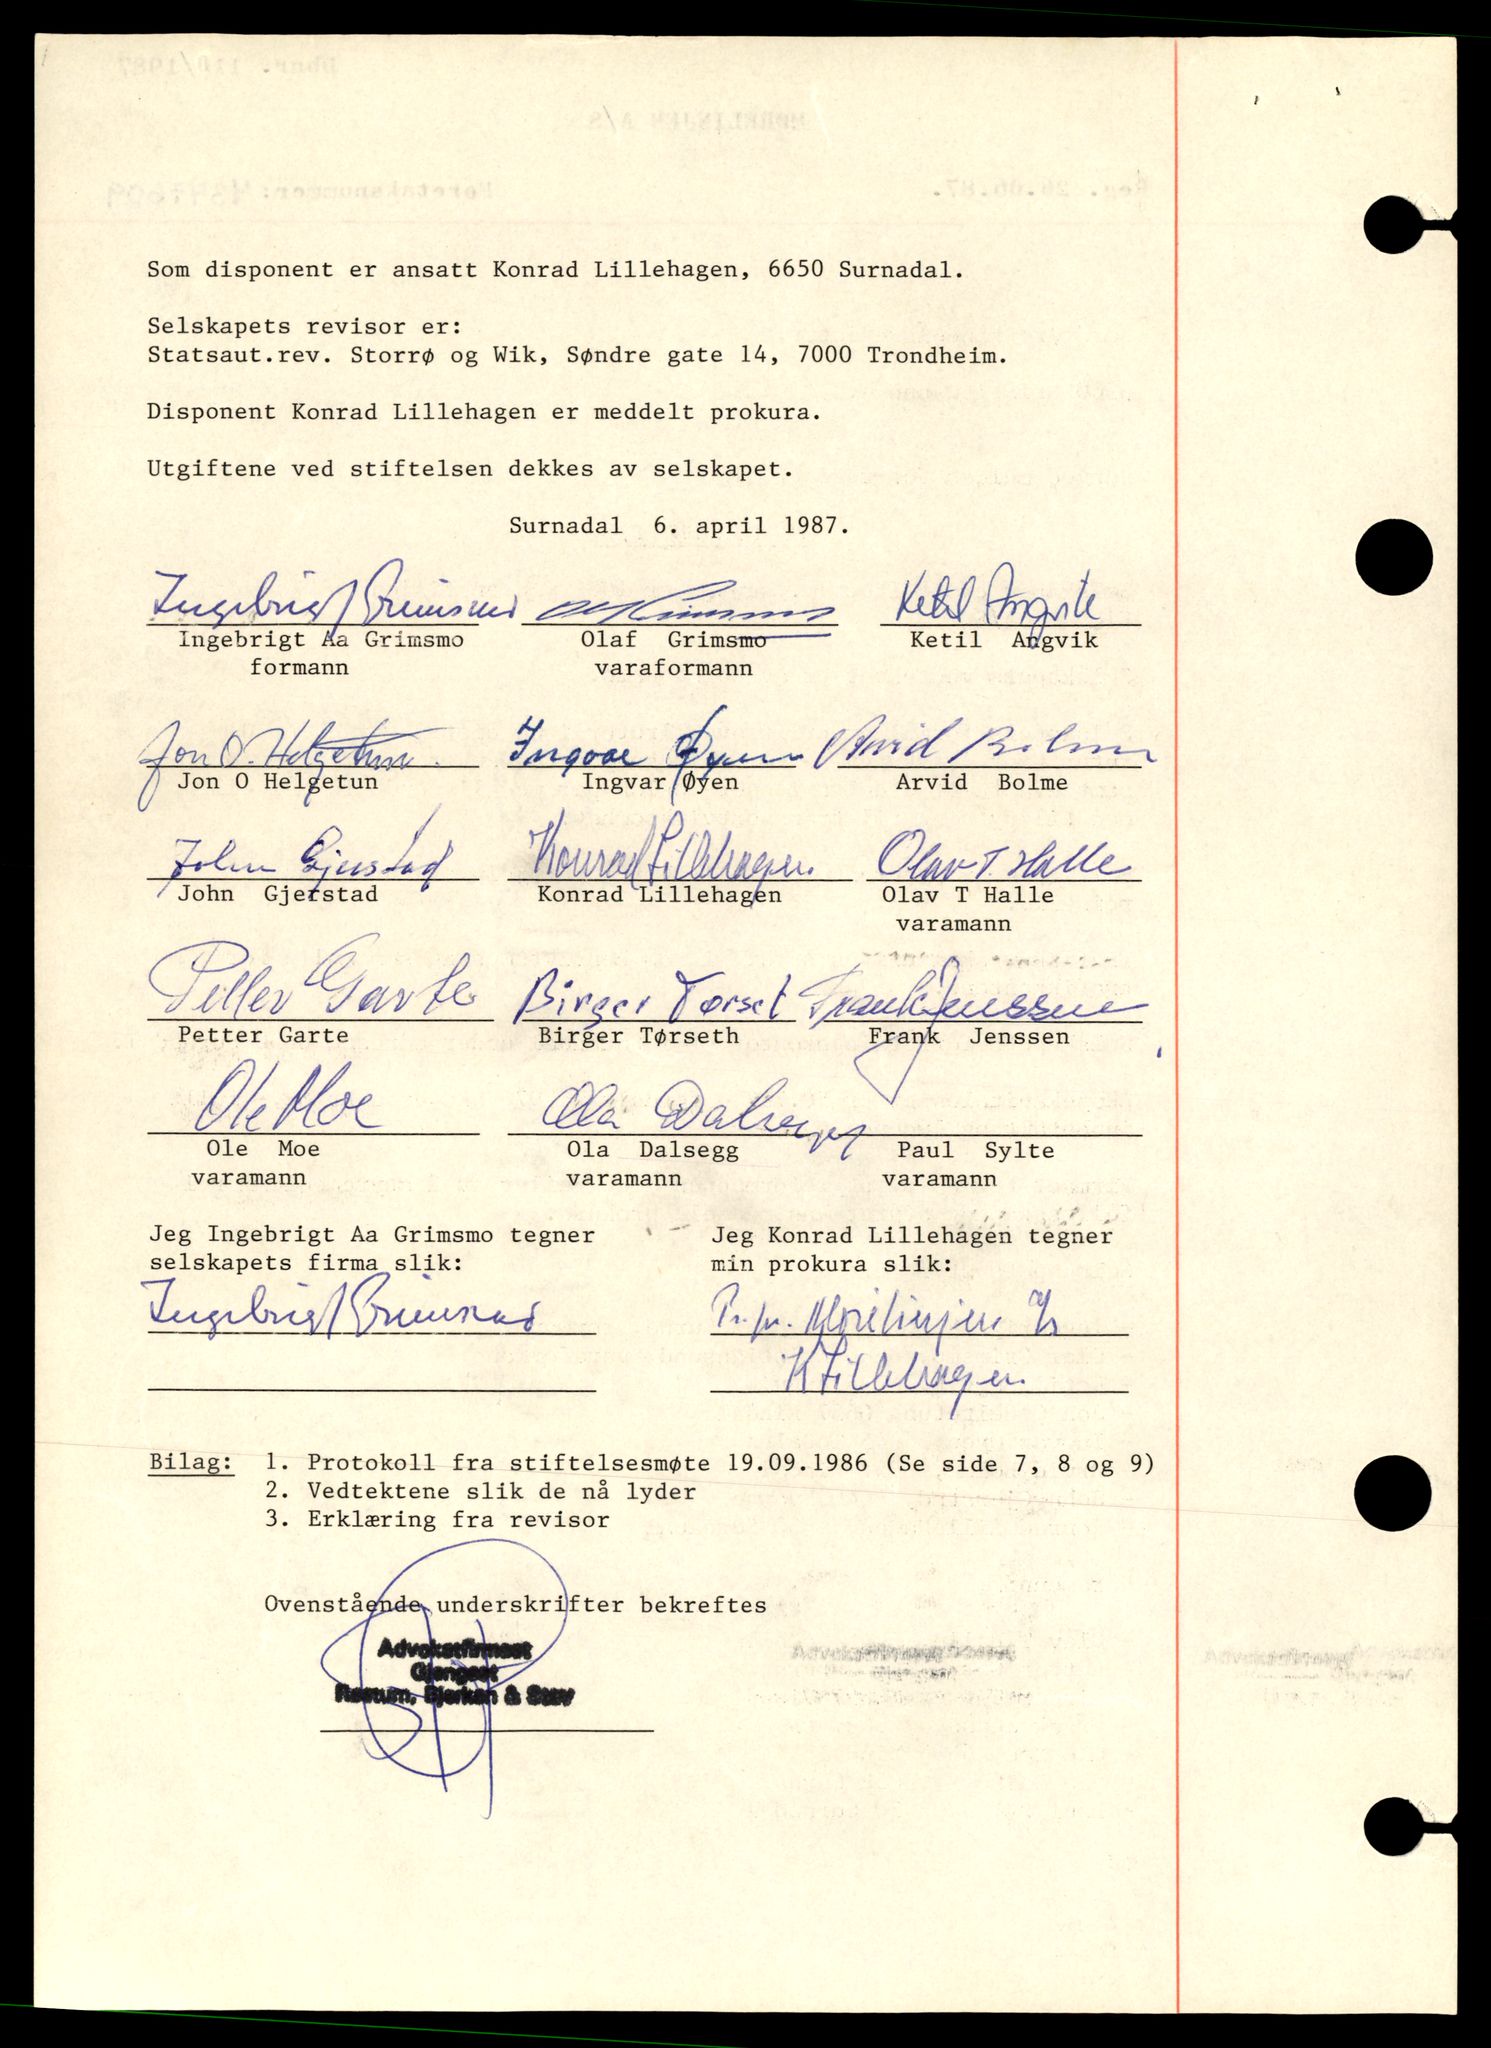 Som disponent er ansatt Konrad Lillehagen, 6650 Surnadal.
Selskapets revisor er:
Statsaut.rev. Storrø og Wik, Søndre gate 14, 7000 Trondheim.
Disponent Konrad Lillehagen er meddelt prokura.
Utgiftene ved stiftelsen dekkes av selskapet.
Surnadal 6. april 1987.
Ingebrigt Grimsmo Olaf Grimsmo Ketil Angvik
Ingebrigt Aa Grimsmo Olaf Grimsmo Ketil Angvik
formann varaformann
Jon O. Helgetun Ingvar Øyen Arvid Bolme
Jon O Helgetun Ingvar Øyen Arvid Bolme
John Gjerstad Konrad Lillehagen Olav T. Halle
John Gjerstad Konrad Lillehagen Olav T Halle
varamann
Petter Garte Birger Tørset Frank Jenssen
Petter Garte Birger Tørseth Frank Jenssen
Ole Moe Ola Dalsegg
Ole Moe Ola Dalsegg Paul Sylte
varamann varamann varamann
Jeg Ingebrigt Aa Grimsmo tegner Jeg Konrad Lillehagen tegner
selskapets firma slik: min prokura slik:
Ingebrigt Grimsmo Pr. pr. Mørelinjen a/s
K Lillehagen
Bilag: 1. Protokoll fra stiftelsesmøte 19.09.1986 (Se side 7, 8 og 9)
2. Vedtektene slik de nå lyder
3. Erklæring fra revisor
Ovenstående underskrifter bekreftes
Advokatfirmaet
Gjengset
Røstum, Bjerkan & Stav